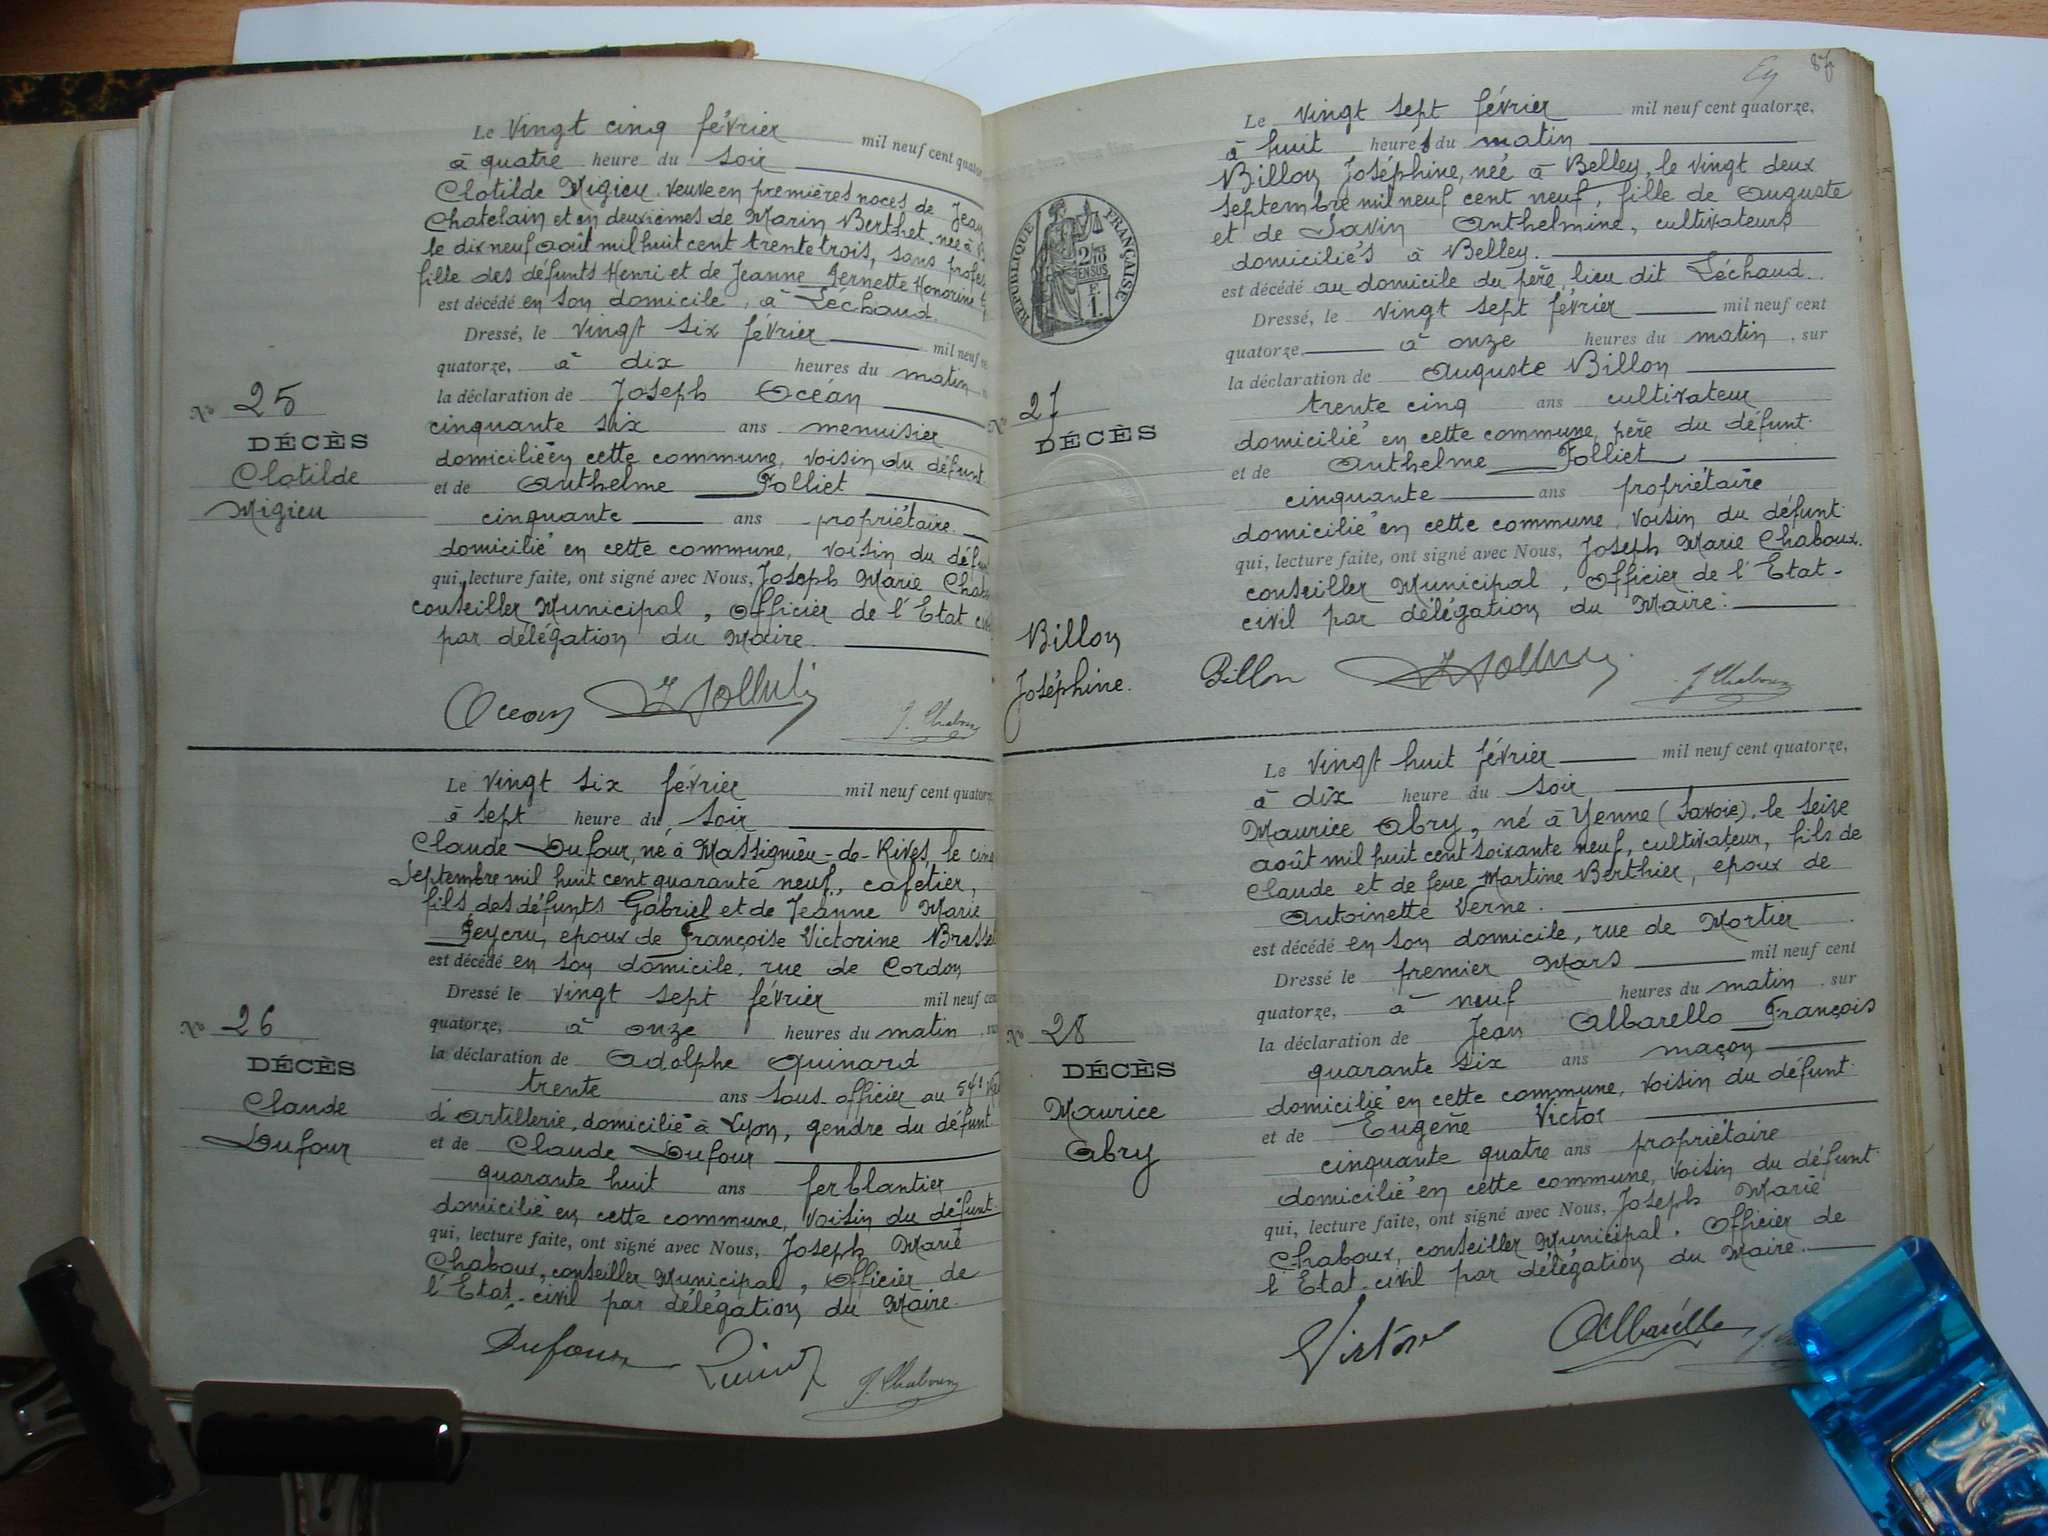 Le vingt cinq février mil neuf cent
à quatre heure du soir
Clotilde Migieu veuve en premières noces de Jean
Chatelain et en deuxièmes de Marin Berthet, née à
le dix neuf août mil huit cent trente trois, sans
fille des défunts Henri et de Jeanne Pernette Honorine
est décédé en son domicile, à Léchaud.
Dressé, le vingt six février mil neuf
quatorze, à dix heures du matin
la déclaration de Joseph Océan
cinquante six ans menuisier
domicilié en cette commune, voisin du défunt
et de Anthelme Folliet
cinquante ans propriétaire
domicilié en cette commune, voisin du
qui, lecture faite, ont signé avec Nous, Joseph Marie
conseiller Municipal, Officier de l'Etat
par délégation du Maire.
No 25
DÉCÈS
Clotilde
Migieu
Océan
J. Chaboux
Le vingt six février mil neuf cent
à sept heure du soir
Claude Dufour, né à Massignieu-de-Rives, le cinq
Septembre mil huit cent quarante neuf, cafetier,
fils des défunts Gabriel et de Jeanne Marie
Peycru, époux de Françoise Victorine
est décédé en son domicile, rue de Cordon
Dressé le vingt sept février mil neuf
quatorze, à onze heures du matin
la déclaration de Adolphe Quinard
trente ans sous officier au 54e
d'Artillerie, domicilié à Lyon, gendre du défunt
et de Claude Dufour
quarante huit ans ferblantier
domicilié en cette commune, voisin du défunt.
qui, lecture faite, ont signé avec Nous, Joseph Marie
Chaboux, conseiller Municipal, Officier de
l'Etat-civil par délégation du Maire.
No 26
DÉCÈS
Claude
Dufour
Dufour
J. Chaboux
87
Le vingt sept février mil neuf cent quatorze,
à huit heures du matin
Billon Joséphine, née à Belley, le vingt deux
septembre mil neuf cent neuf, fille de Auguste
et de Savin Anthelmine, cultivateurs
domiciliés à Belley.
est décédé au domicile du père, lieu dit Léchaud.
Dressé, le vingt sept février mil neuf cent
quatorze, à onze heures du matin, sur
la déclaration de Auguste Billon
trente cinq ans cultivateur
domicilié en cette commune, père du défunt.
et de Anthelme Folliet
cinquante ans propriétaire
domicilié en cette commune, voisin du défunt.
qui, lecture faite, ont signé avec Nous, Joseph Marie Chaboux.
conseiller Municipal, Officier de l'Etat-
civil par délégation du Maire.
RÉPUBLIQUE FRANÇAISE
2/10
EN SUS
1.
No 27
DÉCÈS
Billon
Joséphine.
Billon
J. Chaboux
Le vingt huit février mil neuf cent quatorze,
à dix heure du soir
Maurice Abry, né à Yenne (Savoie), le seize
août mil huit cent soixante neuf, cultivateur, fils de
Claude et de feue Martine Berthier, époux de
Antoinette Verne.
est décédé en son domicile, rue de Mortier
Dressé le premier Mars mil neuf cent
quatorze, à neuf heures du matin, sur
la déclaration de Jean Albarello François
quarante six ans maçon
domicilié en cette commune, voisin du défunt.
et de Eugène Victor
cinquante quatre ans propriétaire
domicilié en cette commune, voisin du défunt.
qui, lecture faite, ont signé avec Nous, Joseph Marie
Chaboux, conseiller Municipal, Officier de
l'Etat-civil par délégation du Maire.
No 28
DÉCÈS
Maurice
Abry
Victor